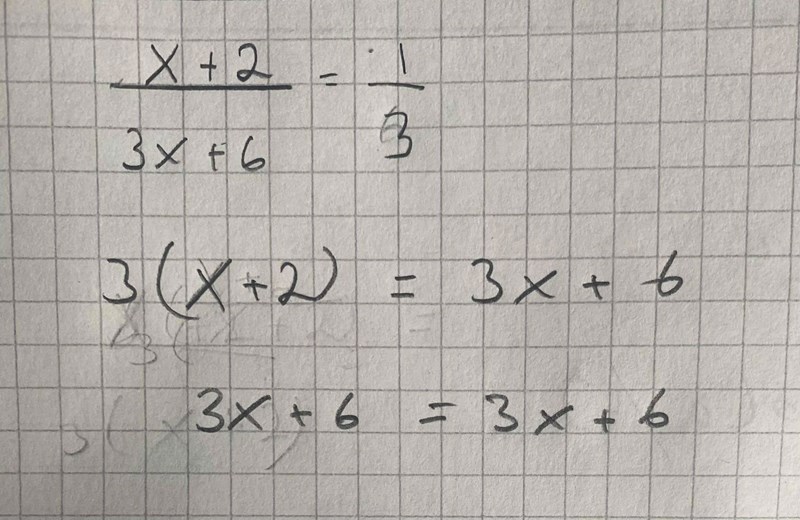 x + 2 / 3x + 6 = 1 / 3
3(x+2) = 3x + 6
3x + 6 = 3x + 6